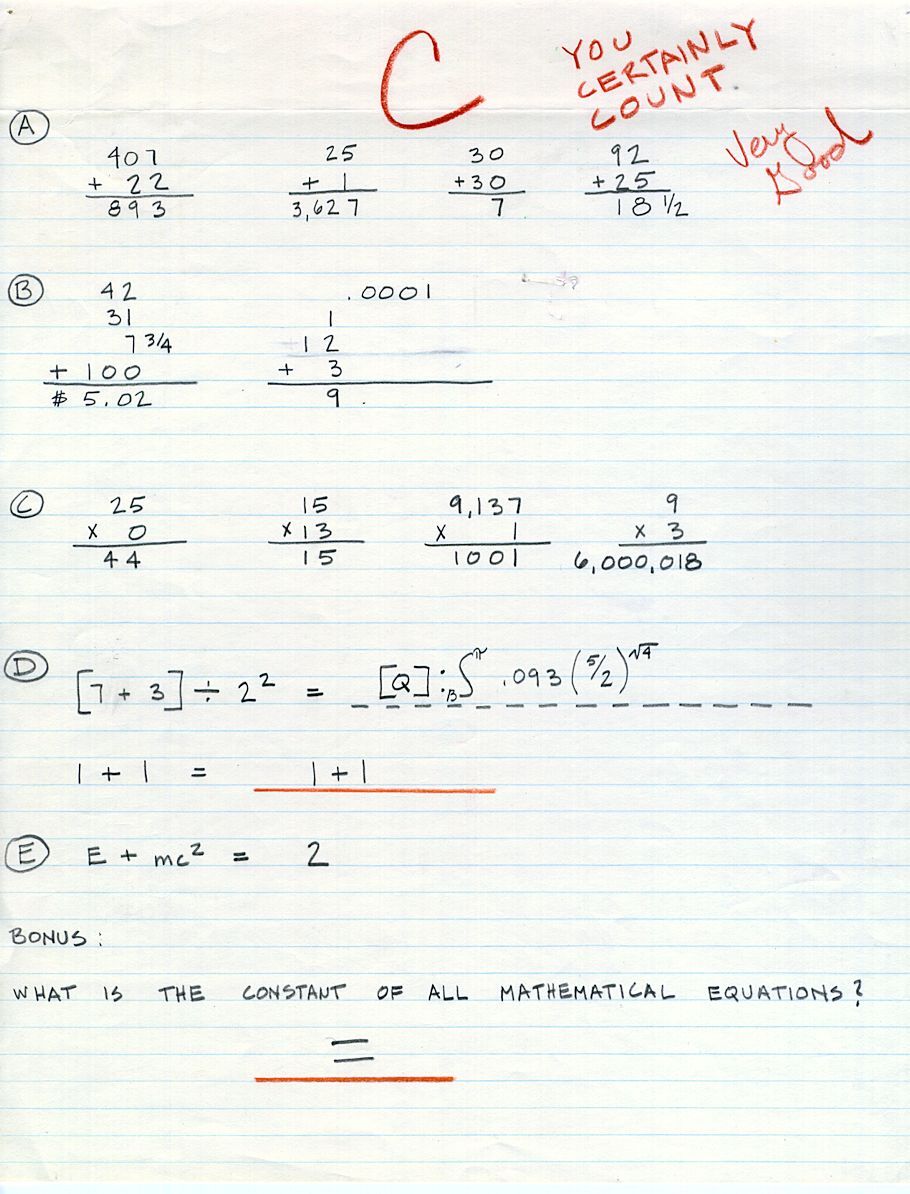 C
YOU
CERTAINLY
COUNT.
Very
Good
A
407
+ 22
893
25
+ 1
3,627
30
+30
7
92
+25
18 1/2
B
42
31
7 3/4
+ 100
$ 5.02
.0001
1
12
+ 3
9 .
C
25
x 0
44
15
x 13
15
9,137
x 1
1001
9
x 3
6,000,018
D
[7 + 3] ÷ 2² = [Q]:₁₃∫^π .093 (5/2)^√4
1 + 1 = 1 + 1
E
E + mc² = 2
BONUS:
WHAT IS THE CONSTANT OF ALL MATHEMATICAL EQUATIONS?
=